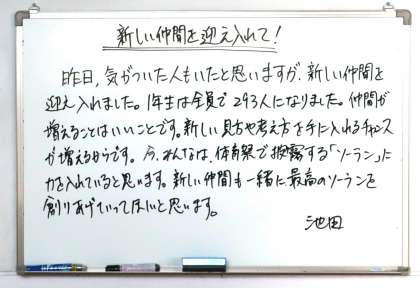 新しい仲間を迎え入れて!
昨日,気がついた人もいたと思いますが、新しい仲間を
迎え入れました。1年生は全員で293人になりました。仲間が
増えることはいいことです。新しい見方や考え方を手に入れるチャンス
が増えるからです。今、みんなは、体育祭で披露する「ソーラン」に
力を入れていると思います。新しい仲間も一緒に最高のソーランを
創りあげていってほしいと思います。
池田